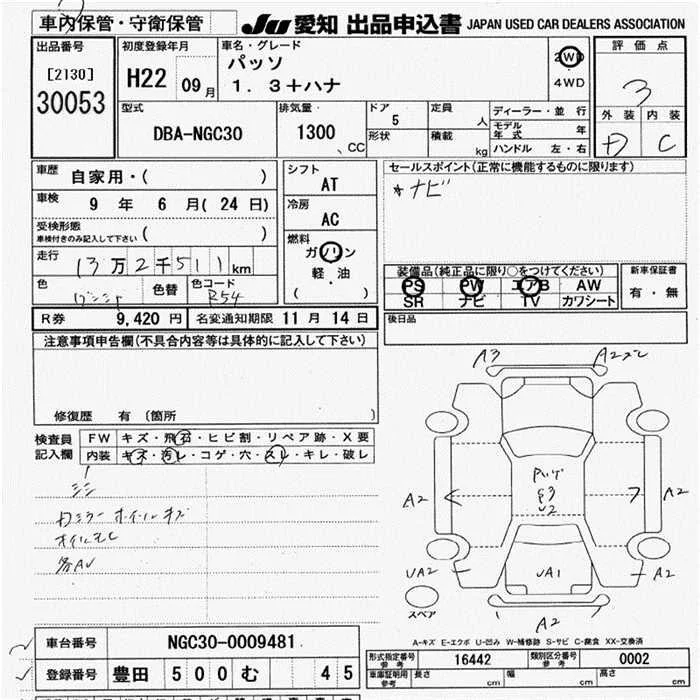 車内保管・守衛保管 JU 愛知 出品申込書 JAPAN USED CAR DEALERS ASSOCIATION
出品番号 初度登録年月 車名・グレード 評価点
[2130] H22 09月 パッソ 2WD
30053 1.3+ハナ 4WD 3
型式 排気量 ドア 5 定員 人 ディーラー・並行 外装 内装
DBA-NGC30 1300、CC 形状 積載 kg モデル年式 年 D C
ハンドル 左・右
車歴 自家用・( ) シフト AT セールスポイント(正常に機能するものに限ります)
車検 9年 6月(24日) 冷房 AC *ナビ
受検形態
車検付きのみ記入して下さい ( ) 燃料 ガソリン
走行 13万2千511km 軽・油 装備品(純正品に限り○をつけてください) 新車保証書
色 色替 色コード R54 ( ) PS PW エアB AW 有・無
SR ナビ TV カワシート
R券 9,420円 名変通知期限 11月 14日 後日品
注意事項申告欄(不具合内容等は具体的に記入して下さい)
修復歴 有 (箇所 )
検査員記入欄 FW キズ・飛石・ヒビ割・リペア跡・X要
内装 キズ・汚レ・コゲ・穴・スレ・キレ・破レ
ホイルキズ
各AU
A3 A2
A2 A2
G3
U2
UA2 UA1 A2
スペア A2
A-キズ E-エクボ U-凹み W-補修跡 S-サビ C-腐食 XX-交換済
車台番号 NGC30-0009481
登録番号 豊田 500 む 45
形式指定番号 参考 16442 類別区分番号 参考 0002
車庫証明用 参考 長さ cm 幅 cm 高さ cm